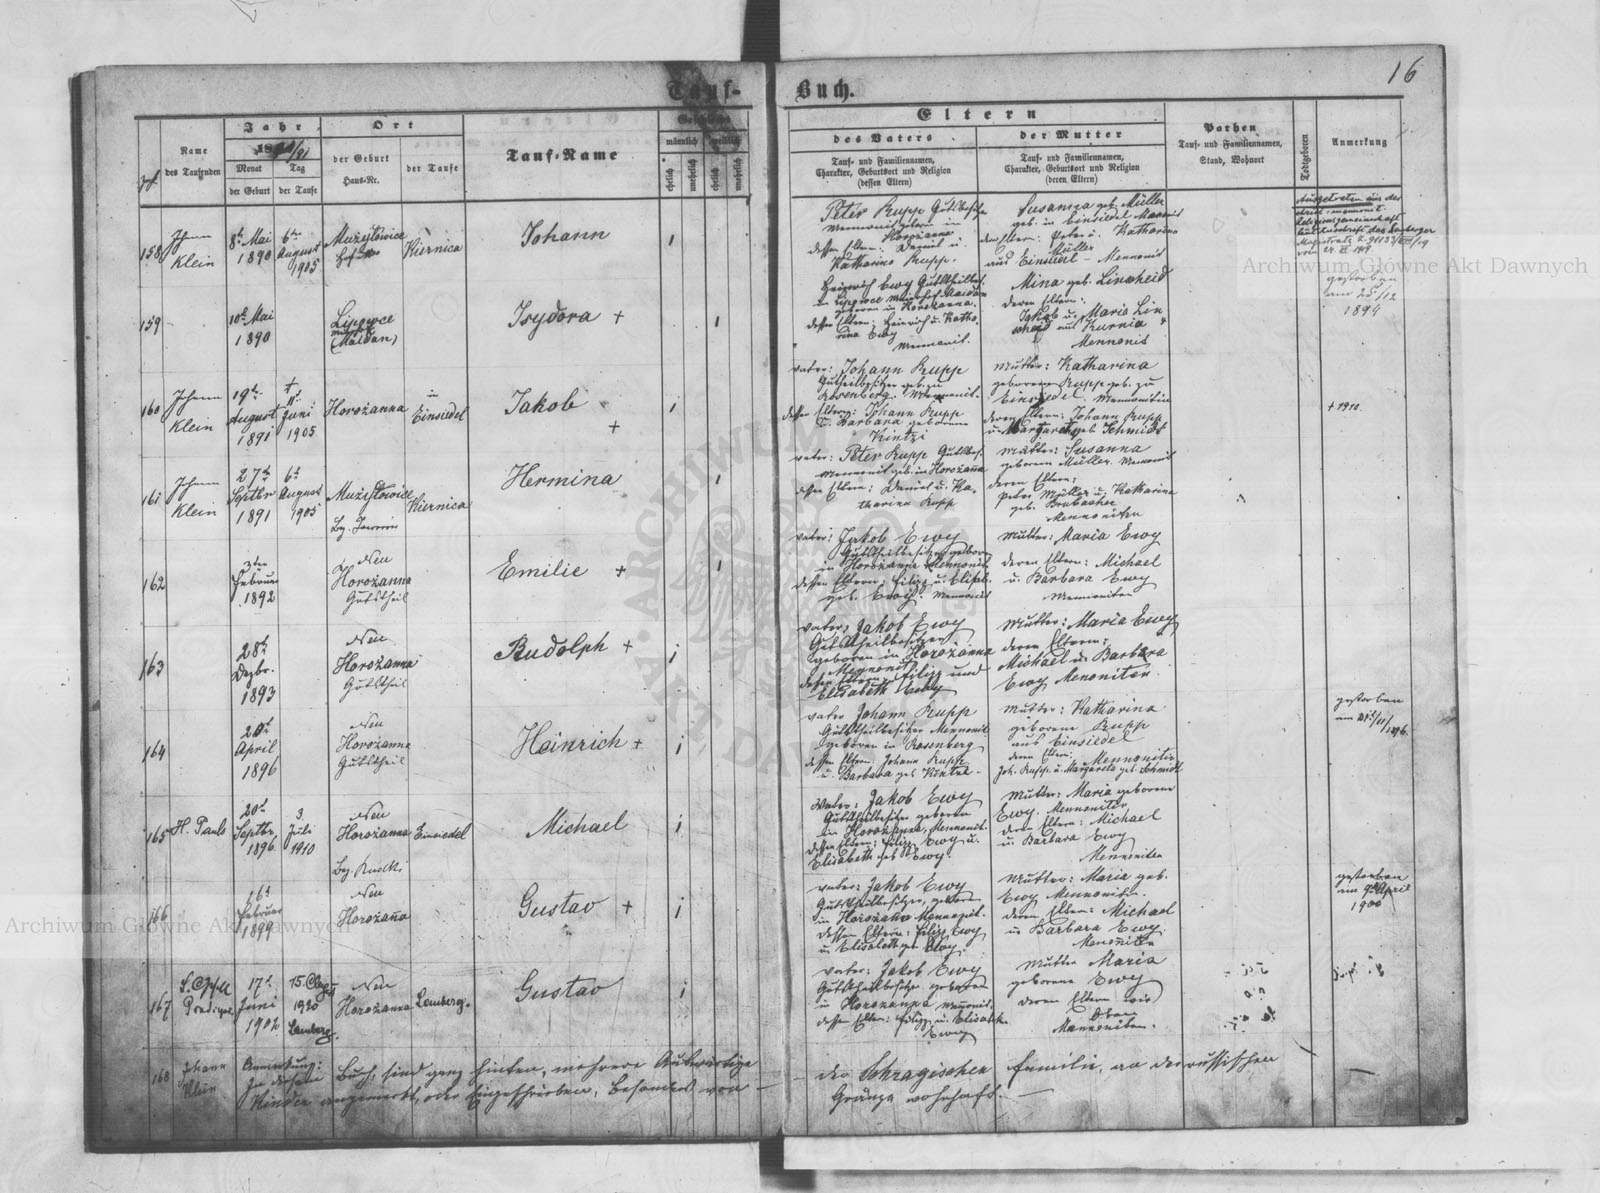 16
Tauf- Buch.
Jahr
1890/91
Ort
Geschlecht
Eltern
Name
des Taufenden
Monat
der Geburt
Tag
der Taufe
der Geburt
Haus-Nr.
der Taufe
Tauf-Name
männlich
weiblich
ehelich
unehelich
ehelich
unehelich
des Vaters
Tauf- und Familiennamen,
Charakter, Geburtsort und Religion
(dessen Eltern)
der Mutter
Tauf- und Familiennamen,
Charakter, Geburtsort und Religion
(deren Eltern)
Pathen
Tauf- und Familiennamen,
Stand, Wohnort
Todtgeboren
Anmerkung
158
Johann
Klein
8t Mai
1890
6ten
August
1905
Mużyłowice
Kiernica
Johann
1
Peter Rupp Gutsbesitzer
Mennonit geboren in
Horożanna
dessen Eltern: Daniel u.
Katharina Rupp.
Susanna geb. Müller
geb. in Einsiedel Mennonit
deren Eltern: Peter u. Katharina
Müller
aus Einsiedel - Mennonit
Ausgetreten aus der
christ: mennonit.
Religionsgemeinschaft
laut Zuschrift des Lemberger
Magistrats Z.
159
10t Mai
1890
Lippowce
(Maidan)
Isydora +
1
Heinrich Ewy Gutstheilbes.
in Lippowce Meierhof Maidan
geboren in Horożanna.
dessen Eltern: Heinrich u. Katha-
rina Ewy
Mennonit.
Mina geb. Linscheid
deren Eltern:
Jakob u. Maria Lin
scheid aus Kurnia
Mennonit
gestorben
am 25/12
1894
160
Johann
Klein
19ten
August
1891
+
11t
Juni
1905
Horożanna
in
Einsiedel
Jakob
+
1
Vater: Johann Rupp
Gutstheilbesitzer geb. zu
Rosenberg. Mennonit.
dessen Eltern: Johann Rupp
u. Barbara geborene
Kintzi
Mutter: Katharina
geborene Rupp geb. zu
Einsiedel. Mennonitin
deren Eltern: Johann Rupp
u. Margareth geb. Schmidt
+ 1910.
161
Johann
Klein
27t
Septbr
1891
6t
August
1905
Mużyłowice
Bez. Jaworow
Kiernica
Hermina
1
Vater: Peter Rupp Gutsbes.
Mennonit geb. in Horożanna
dessen Eltern: Daniel u. Ka-
tharina Rupp
Mutter: Susanna
geborene Müller. Mennonit
deren Eltern:
Peter Müller u. Katharina
geb. Brubacher
Mennoniten
162
3ten
Februar
1892
Neu
Horożanna
Gutstheil
Emilie +
1
Vater: Jakob Ewy
Gutstheilbesitzer geboren
in Horożanna Mennonit
dessen Eltern: Filipp u. Elisab.
geb. Ewy. Mennonit
Mutter: Maria Ewy
deren Eltern: Michael
u. Barbara Ewy
Mennoniten
163
28t
Dezbr.
1893
Neu
Horożanna
Gutstheil
Rudolph +
1
Vater: Jakob Ewy
Gutstheilbesitzer
geboren in Horożanna
Mennonit
dessen Eltern: Filipp und
Elisabeth Ewy
Mutter: Maria Ewy,
deren Eltern:
Michael u. Barbara
Ewy Menoniten
164
20t
April
1896
Neu
Horożanna
Gutstheil
Heinrich +
1
Vater Johann Rupp
Gutstheilbesitzer Mennonit
geboren in Rosenberg
dessen Eltern: Johann Rupp
u. Barbara geb. Kintzi
Mutter: Katharina
geborene Rupp
aus Einsiedel
deren Eltern: Mennoniten
Joh. Rupp u. Margareta geb. Schmidt
gestorben
165
H. Pauls
20t
Septbr,
1896
3
Juli
1910
Neu
Horożanna
Bez. Rudki
Einsiedel
Michael
1
Vater: Jakob Ewy
Gutstheilbesitzer geboren
in Horożanna, Mennonit.
dessen Eltern: Filipp Ewy u.
Elisabeth geb. Ewy.
Mutter: Maria geborene
Ewy. Mennoniten
deren Eltern: Michael
u. Barbara Ewy
Mennoniten
166
16t
Februar
1899
Neu
Horożanna
Gustav +
1
Vater: Jakob Ewy
Gutstheilbesitzer, geboren
in Horożanna Mennonit.
dessen Eltern: Filipp Ewy
u. Elisabeth geb. Ewy.
Mutter: Maria geb.
Ewy Mennoniten.
deren Eltern: Michael
u. Barbara Ewy.
Menoniten
gestorben
am 9t April
1900
167
Prediger
17t
Juni
1902
15. Aug.
1920
Lemberg.
Neu
Horożanna
Lemberg.
Gustav
1
Vater: Jakob Ewy
Gutstheilbesitzer geboren
in Horożanna Mennonit.
dessen Eltern: Filipp u. Elisabeth
Ewy
Mutter Maria
geborene Ewy
deren Eltern wie
Oben
Mennoniten.
168
Johann
Klein
Anmerkung:
In diesem Buch, sind ganz hinten, mehrere Auswärtige der Schragischen Familie, an der russischen
Kinder angemerkt, oder Eingeschrieben, besonders von Gränze wohnhaft.
Archiwum Główne Akt Dawnych
Archiwum Główne Akt Dawnych